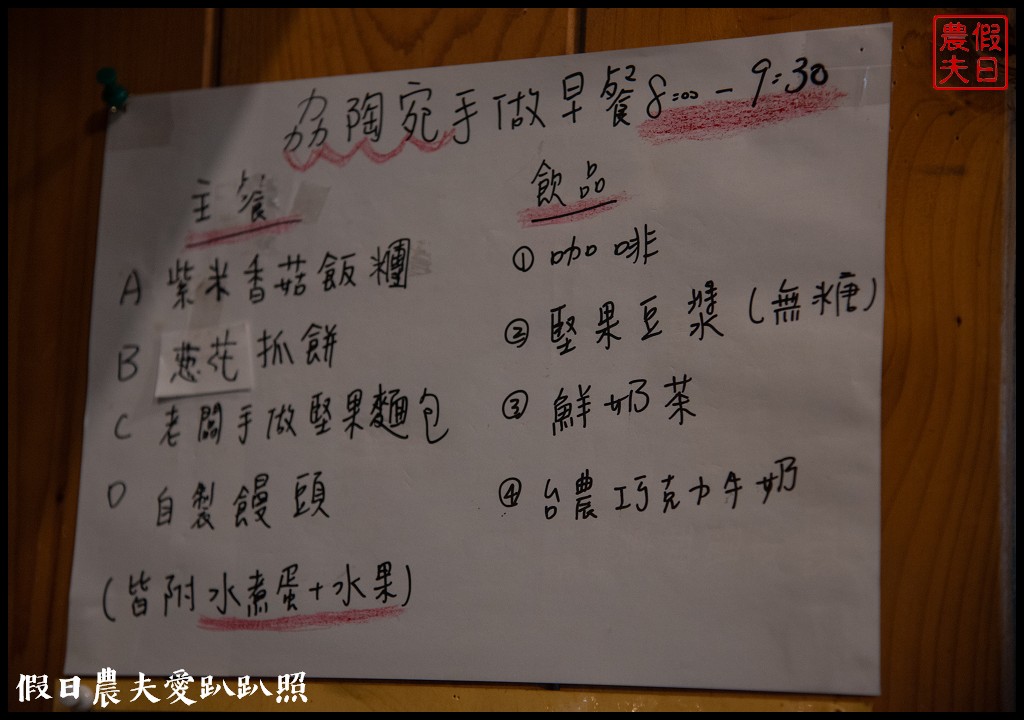 假日
農夫
荔陶宛手做早餐8:00-9:30
主餐
A 紫米香菇飯糰
B 葱花抓餅
C 老闆手做堅果麵包
D 自製饅頭
(皆附水煮蛋+水果)
飲品
① 咖啡
② 堅果豆漿(無糖)
③ 鮮奶茶
④ 台農巧克力牛奶
假日農夫愛趴趴照